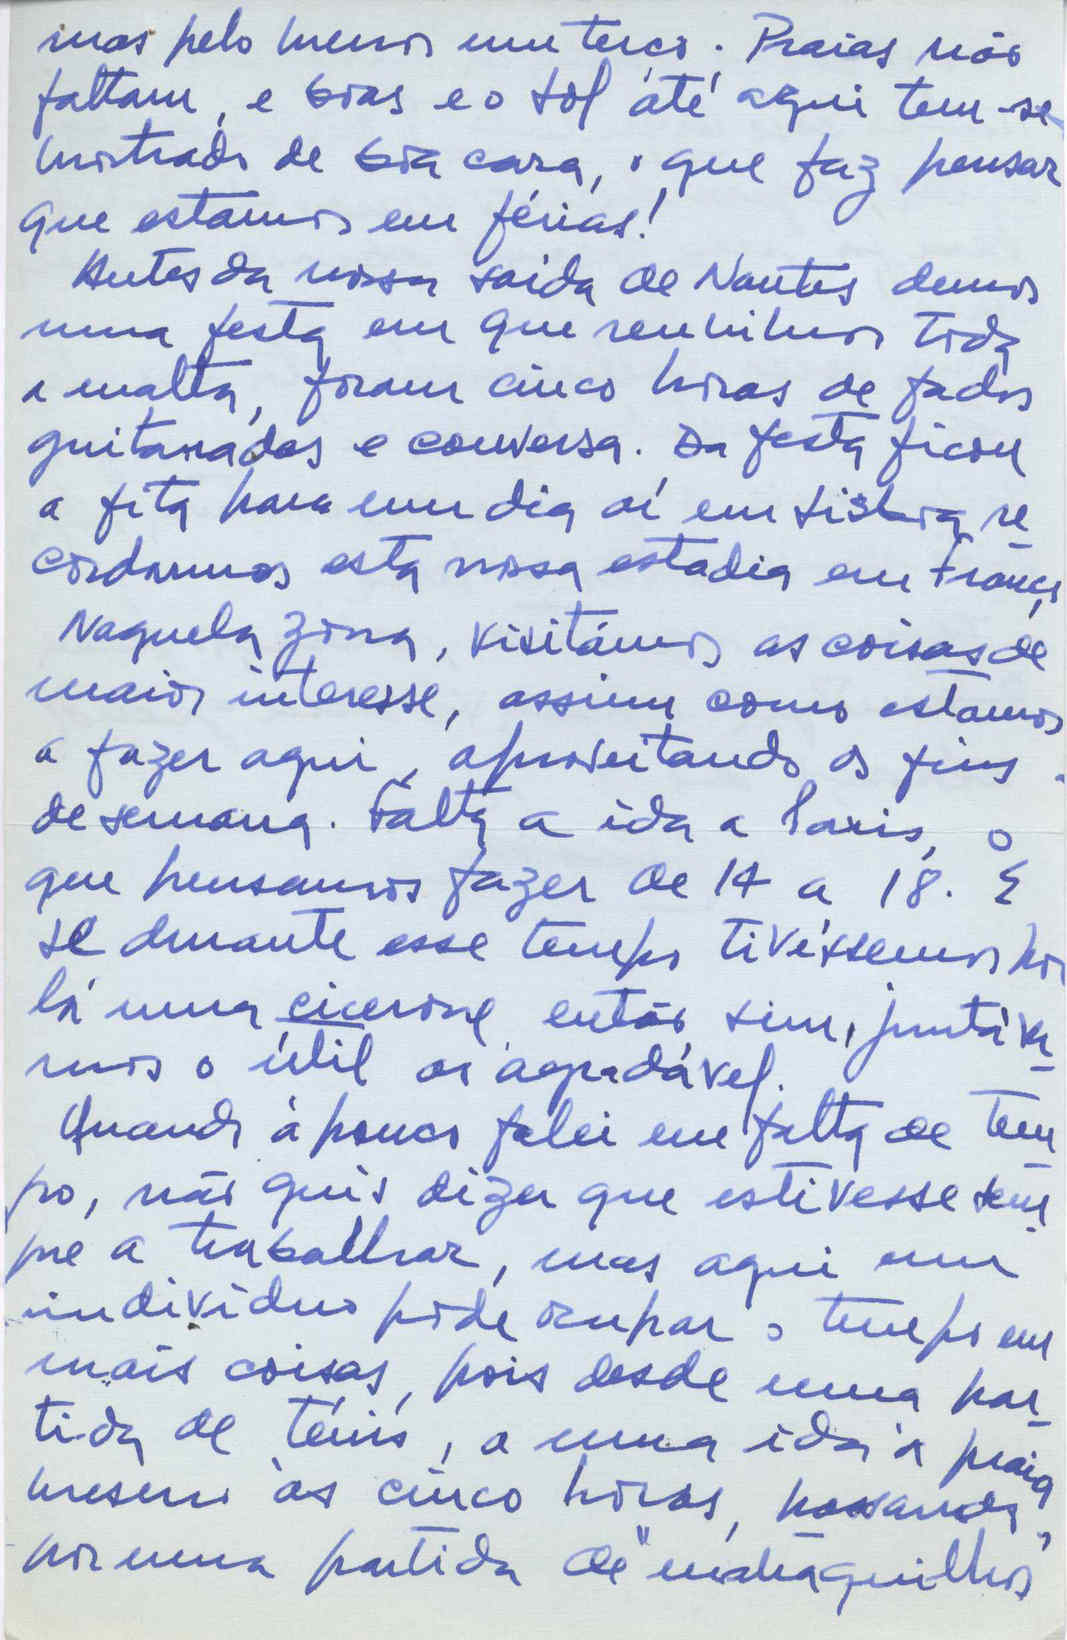 mas pelo menos um terço. Praias não
faltam, e boas e o sol até aqui tem-se
mostrado de boa cara, o que faz pensar
que estamos em férias!
Antes da nossa saída de Nantes demos
uma festa em que reunimos toda
a malta, foram cinco horas de fados
guitarradas e conversa. Da festa ficou
a fita para um dia aí em Lisboa re-
cordarmos esta nossa estadia em França
Naquela zona, visitámos as coisas de
maior interesse, assim como estamos
a fazer aqui, aproveitando os fins
de semana. Falta a ida a Paris, o
que pensamos fazer de 14 a 18. E
se durante esse tempo tivéssemos por
lá uma cicerone então sim, juntáva-
mos o útil ao agradável.
Quando à pouco falei em falta de tem-
po, não quis dizer que estivesse sem-
pre a trabalhar, mas aqui um
indivíduo pode ocupar o tempo em
mais coisas, pois desde uma par-
tida de ténis, a uma ida à praia
mesmo às cinco horas, passando
por uma partida de "matraquilhos"